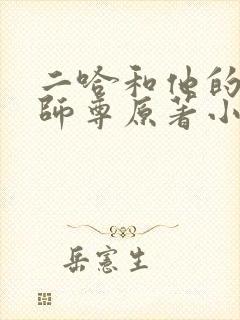 二哈和他的
師尊原著小
岳憲生